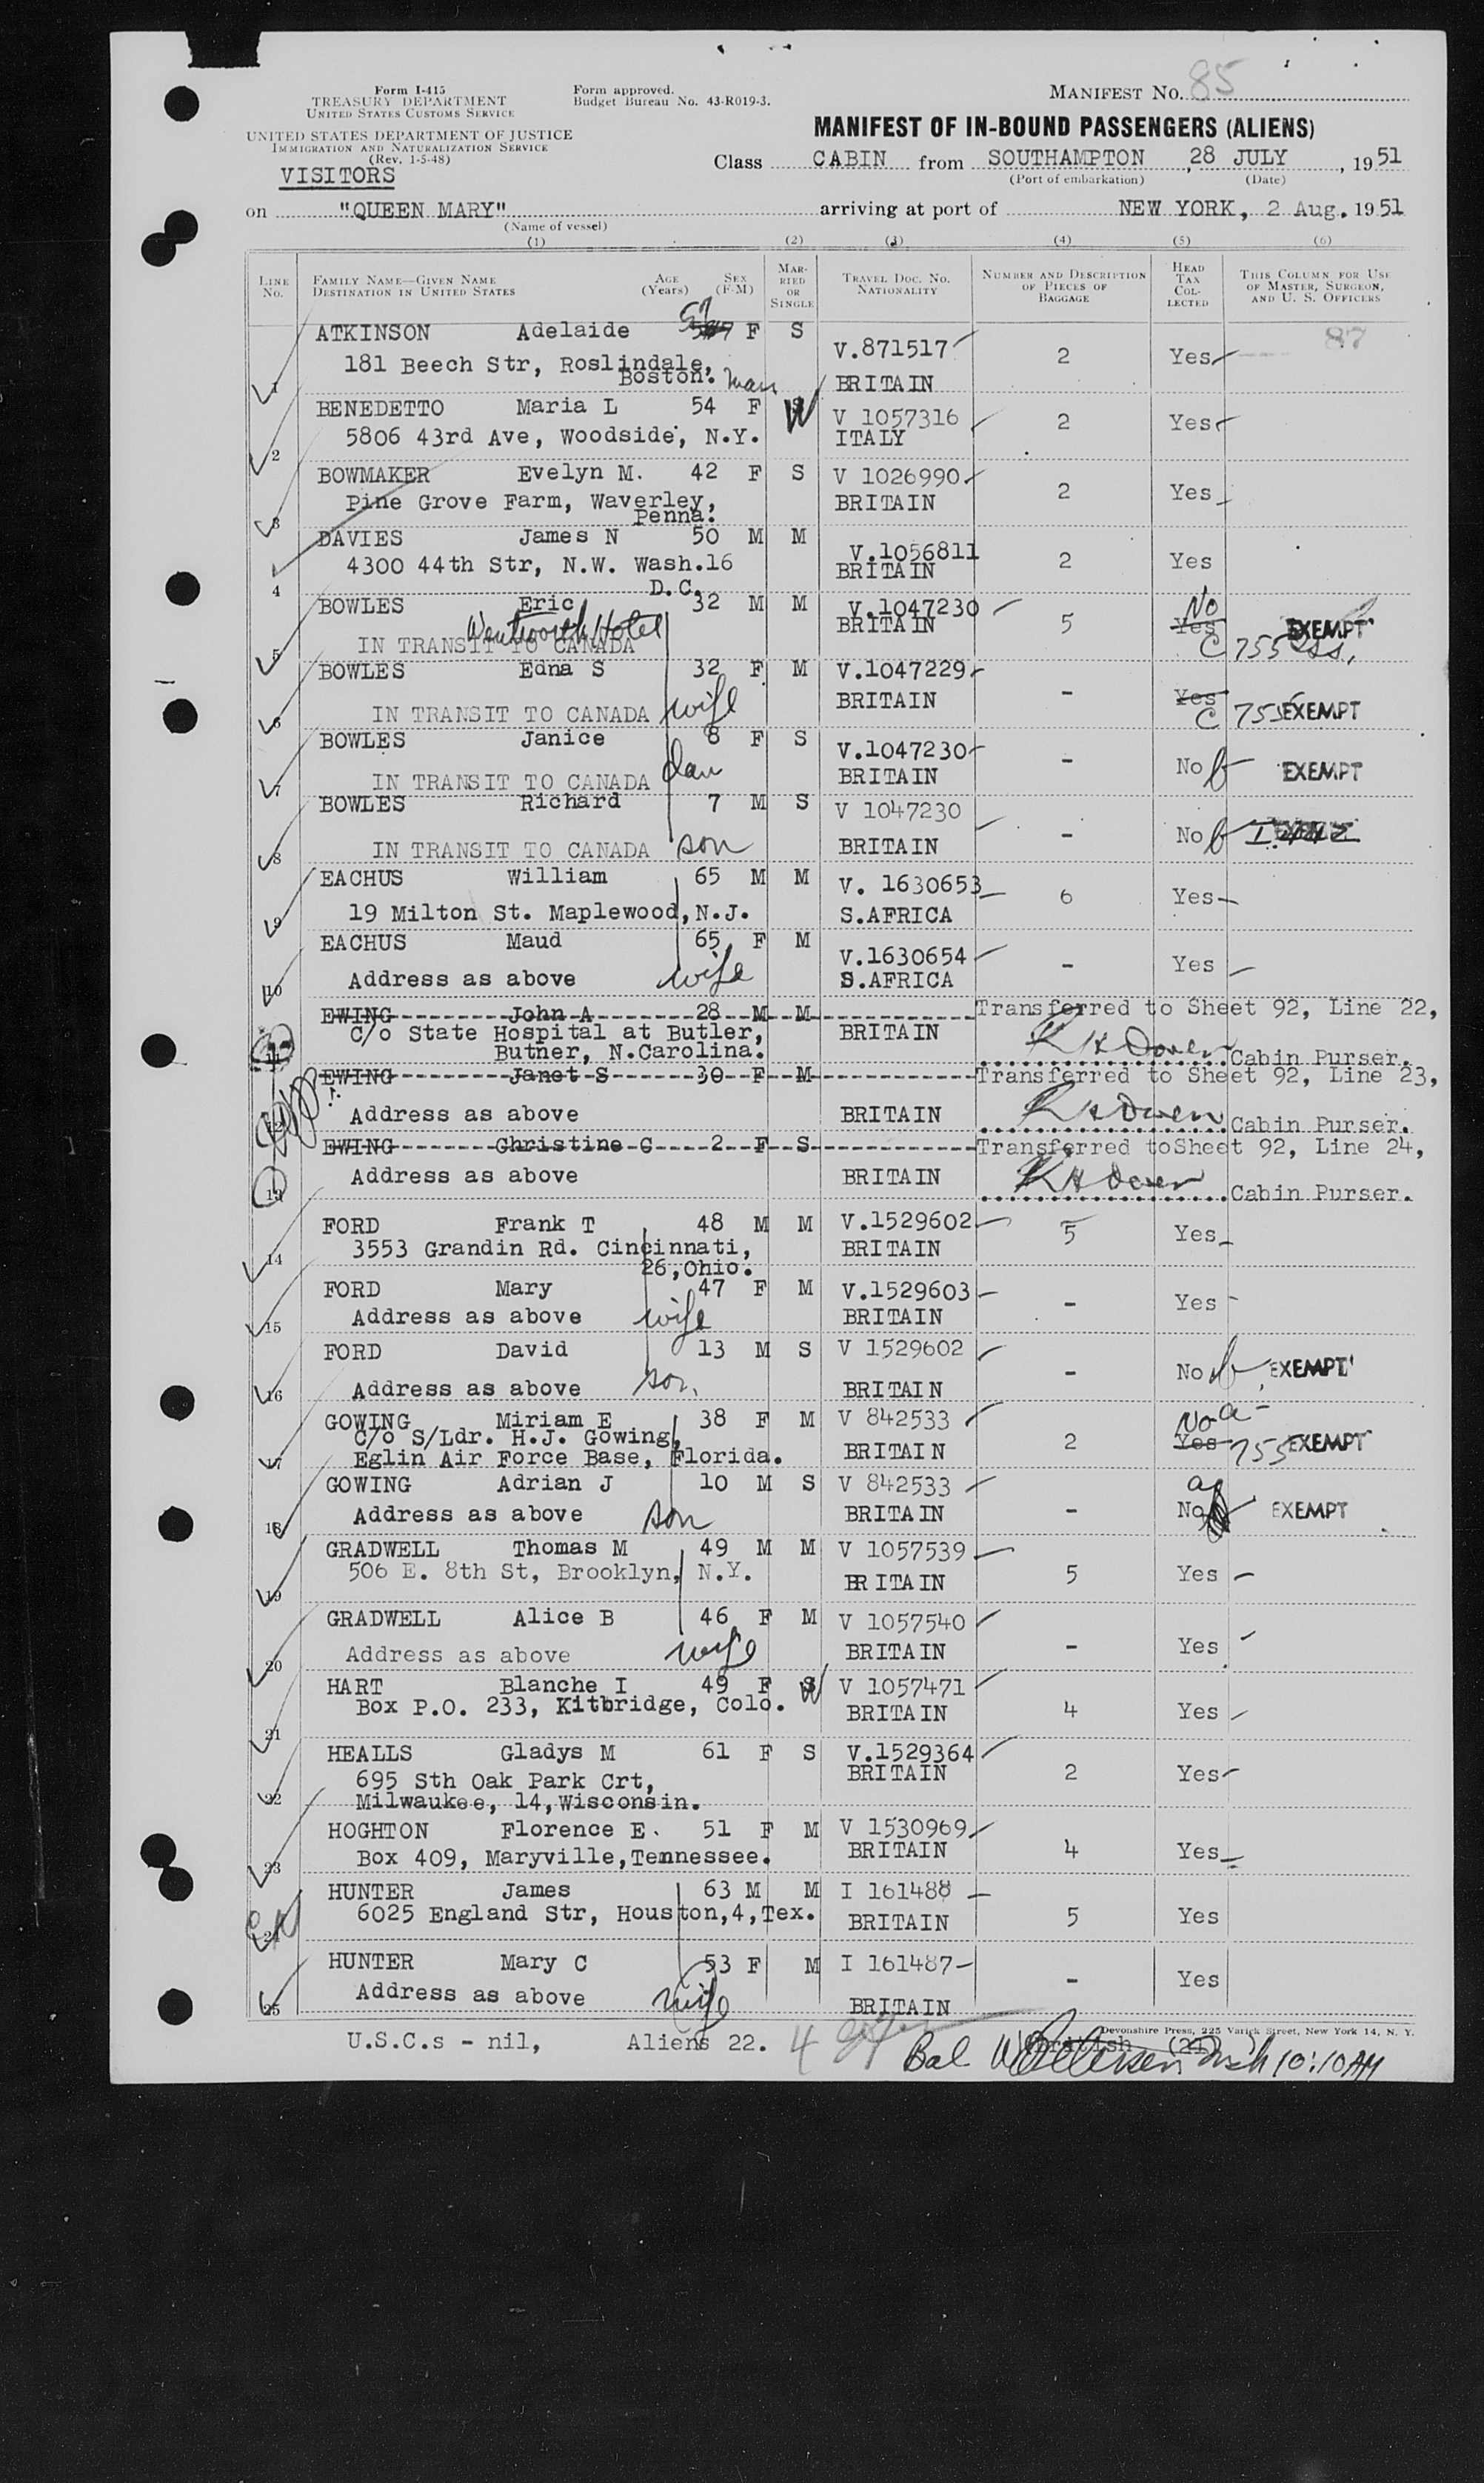 Form I-415
TREASURY DEPARTMENT
UNITED STATES CUSTOMS SERVICE
UNITED STATES DEPARTMENT OF JUSTICE
IMMIGRATION AND NATURALIZATION SERVICE
(Rev. 1-5-48)
VISITORS
Form approved.
Budget Bureau No. 43-R019-3.
MANIFEST No. 85
MANIFEST OF IN-BOUND PASSENGERS (ALIENS)
Class CABIN from SOUTHAMPTON, 28 JULY, 1951
(Port of embarkation) (Date)
on "QUEEN MARY" arriving at port of NEW YORK, 2 Aug. 1951
(Name of vessel)
(1) (2) (3) (4) (5) (6)
LINE No.
FAMILY NAME—GIVEN NAME DESTINATION IN UNITED STATES
AGE (Years)
SEX (F-M)
MARRIED OR SINGLE
TRAVEL DOC. NO. NATIONALITY
NUMBER AND DESCRIPTION OF PIECES OF BAGGAGE
HEAD TAX COLLECTED
THIS COLUMN FOR USE OF MASTER, SURGEON, AND U. S. OFFICERS
ATKINSON Adelaide 57 F S V.871517 2 Yes 87
1 181 Beech Str, Roslindale, Boston. Mass BRITAIN
BENEDETTO Maria L 54 F W V 1057316 2 Yes
2 5806 43rd Ave, Woodside, N.Y. ITALY
BOWMAKER Evelyn M. 42 F S V 1026990 2 Yes
3 Pine Grove Farm, Waverley, Penna. BRITAIN
DAVIES James N 50 M M V.1056811 2 Yes
4 4300 44th Str, N.W. Wash.16 D.C. BRITAIN
BOWLES Eric 32 M M V.1047230 5 No Yes EXEMPT
Wentworth Hotel
5 IN TRANSIT TO CANADA BRITAIN C 755
BOWLES Edna S 32 F M V.1047229 - Yes
6 IN TRANSIT TO CANADA wife BRITAIN C 755 EXEMPT
BOWLES Janice 8 F S V.1047230 - No EXEMPT
7 IN TRANSIT TO CANADA dau BRITAIN
BOWLES Richard 7 M S V 1047230 - No
8 IN TRANSIT TO CANADA son BRITAIN
EACHUS William 65 M M V. 1630653 6 Yes
9 19 Milton St. Maplewood, N.J. S.AFRICA
EACHUS Maud 65 F M V.1630654 - Yes
10 Address as above wife S.AFRICA
EWING John A 28 M M Transferred to Sheet 92, Line 22,
11 C/o State Hospital at Butler, BRITAIN
Butner, N.Carolina. Cabin Purser.
EWING Janet S 30 F M Transferred to Sheet 92, Line 23,
12 Address as above BRITAIN Cabin Purser.
EWING Christine C 2 F S Transferred toSheet 92, Line 24,
13 Address as above BRITAIN Cabin Purser.
FORD Frank T 48 M M V.1529602 5 Yes
14 3553 Grandin Rd. Cincinnati, 26,Ohio. BRITAIN
FORD Mary 47 F M V.1529603 - Yes
15 Address as above wife BRITAIN
FORD David 13 M S V 1529602 - No EXEMPT
16 Address as above son BRITAIN
GOWING Miriam E 38 F M V 842533 2 No Yes 755 EXEMPT
C/o S/Ldr. H.J. Gowing,
17 Eglin Air Force Base, Florida. BRITAIN
GOWING Adrian J 10 M S V 842533 - No EXEMPT
18 Address as above son BRITAIN
GRADWELL Thomas M 49 M M V 1057539 5 Yes
19 506 E. 8th St, Brooklyn, N.Y. BRITAIN
GRADWELL Alice B 46 F M V 1057540 - Yes
20 Address as above wife BRITAIN
HART Blanche I 49 F W V 1057471 4 Yes
21 Box P.O. 233, Kitbridge, Colo. BRITAIN
HEALLS Gladys M 61 F S V.1529364 2 Yes
695 Sth Oak Park Crt, BRITAIN
22 Milwaukee, 14,Wisconsin.
HOGHTON Florence E. 51 F M V 1530969 4 Yes
23 Box 409, Maryville,Tennessee. BRITAIN
HUNTER James 63 M M I 161488 5 Yes
24 6025 England Str, Houston,4,Tex. BRITAIN
HUNTER Mary C 53 F M I 161487 - Yes
25 Address as above wife BRITAIN
Devonshire Press, 225 Varick Street, New York 14, N. Y.
U.S.C.s - nil, Aliens 22. 4 British (21)
Bal 10:10AM